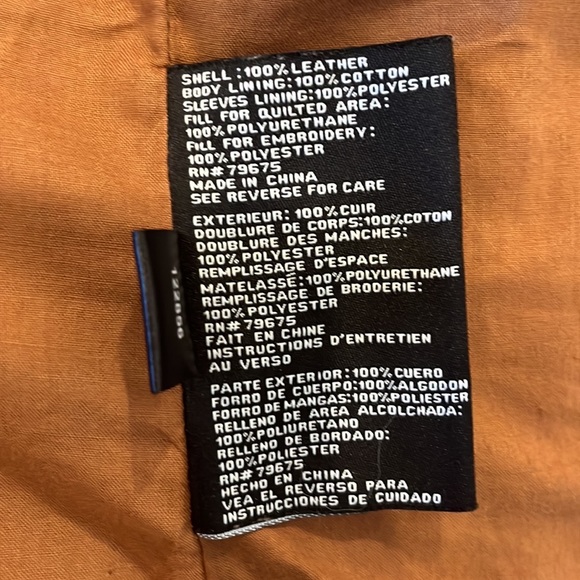 SHELL :100%LEATHER
BODY LINING:100%COTTON
SLEEVES LINING:100%POLYESTER
FILL FOR QUILTED AREA:
100%POLYURETHANE
FILL FOR EMBROIDERY:
100%POLYESTER
RN# 79675
MADE IN CHINA
SEE REVERSE FOR CARE
EXTERIEUR: 100%CUIR
DOUBLURE DE CORPS:100%COTON
DOUBLURE DES MANCHES:
100%POLYESTER
REMPLISSAGE D'ESPACE
MATELASSÉ:100%POLYURETHANE
REMPLISSAGE DE BRODERIE:
100%POLYESTER
RN# 79675
FAIT EN CHINE
INSTRUCTIONS D'ENTRETIEN
AU VERSO
PARTE EXTERIOR:100%CUERO
FORRO DE CUERPO:100%ALGODON
FORRO DE MANGAS:100%POLIESTER
RELLENO DE AREA ALCOLCHADA:
100%POLIURETANO
RELLENO DE BORDADO:
100%POLIESTER
RN# 79675
HECHO EN CHINA
VEA EL REVERSO PARA
INSTRUCCIONES DE CUIDADO